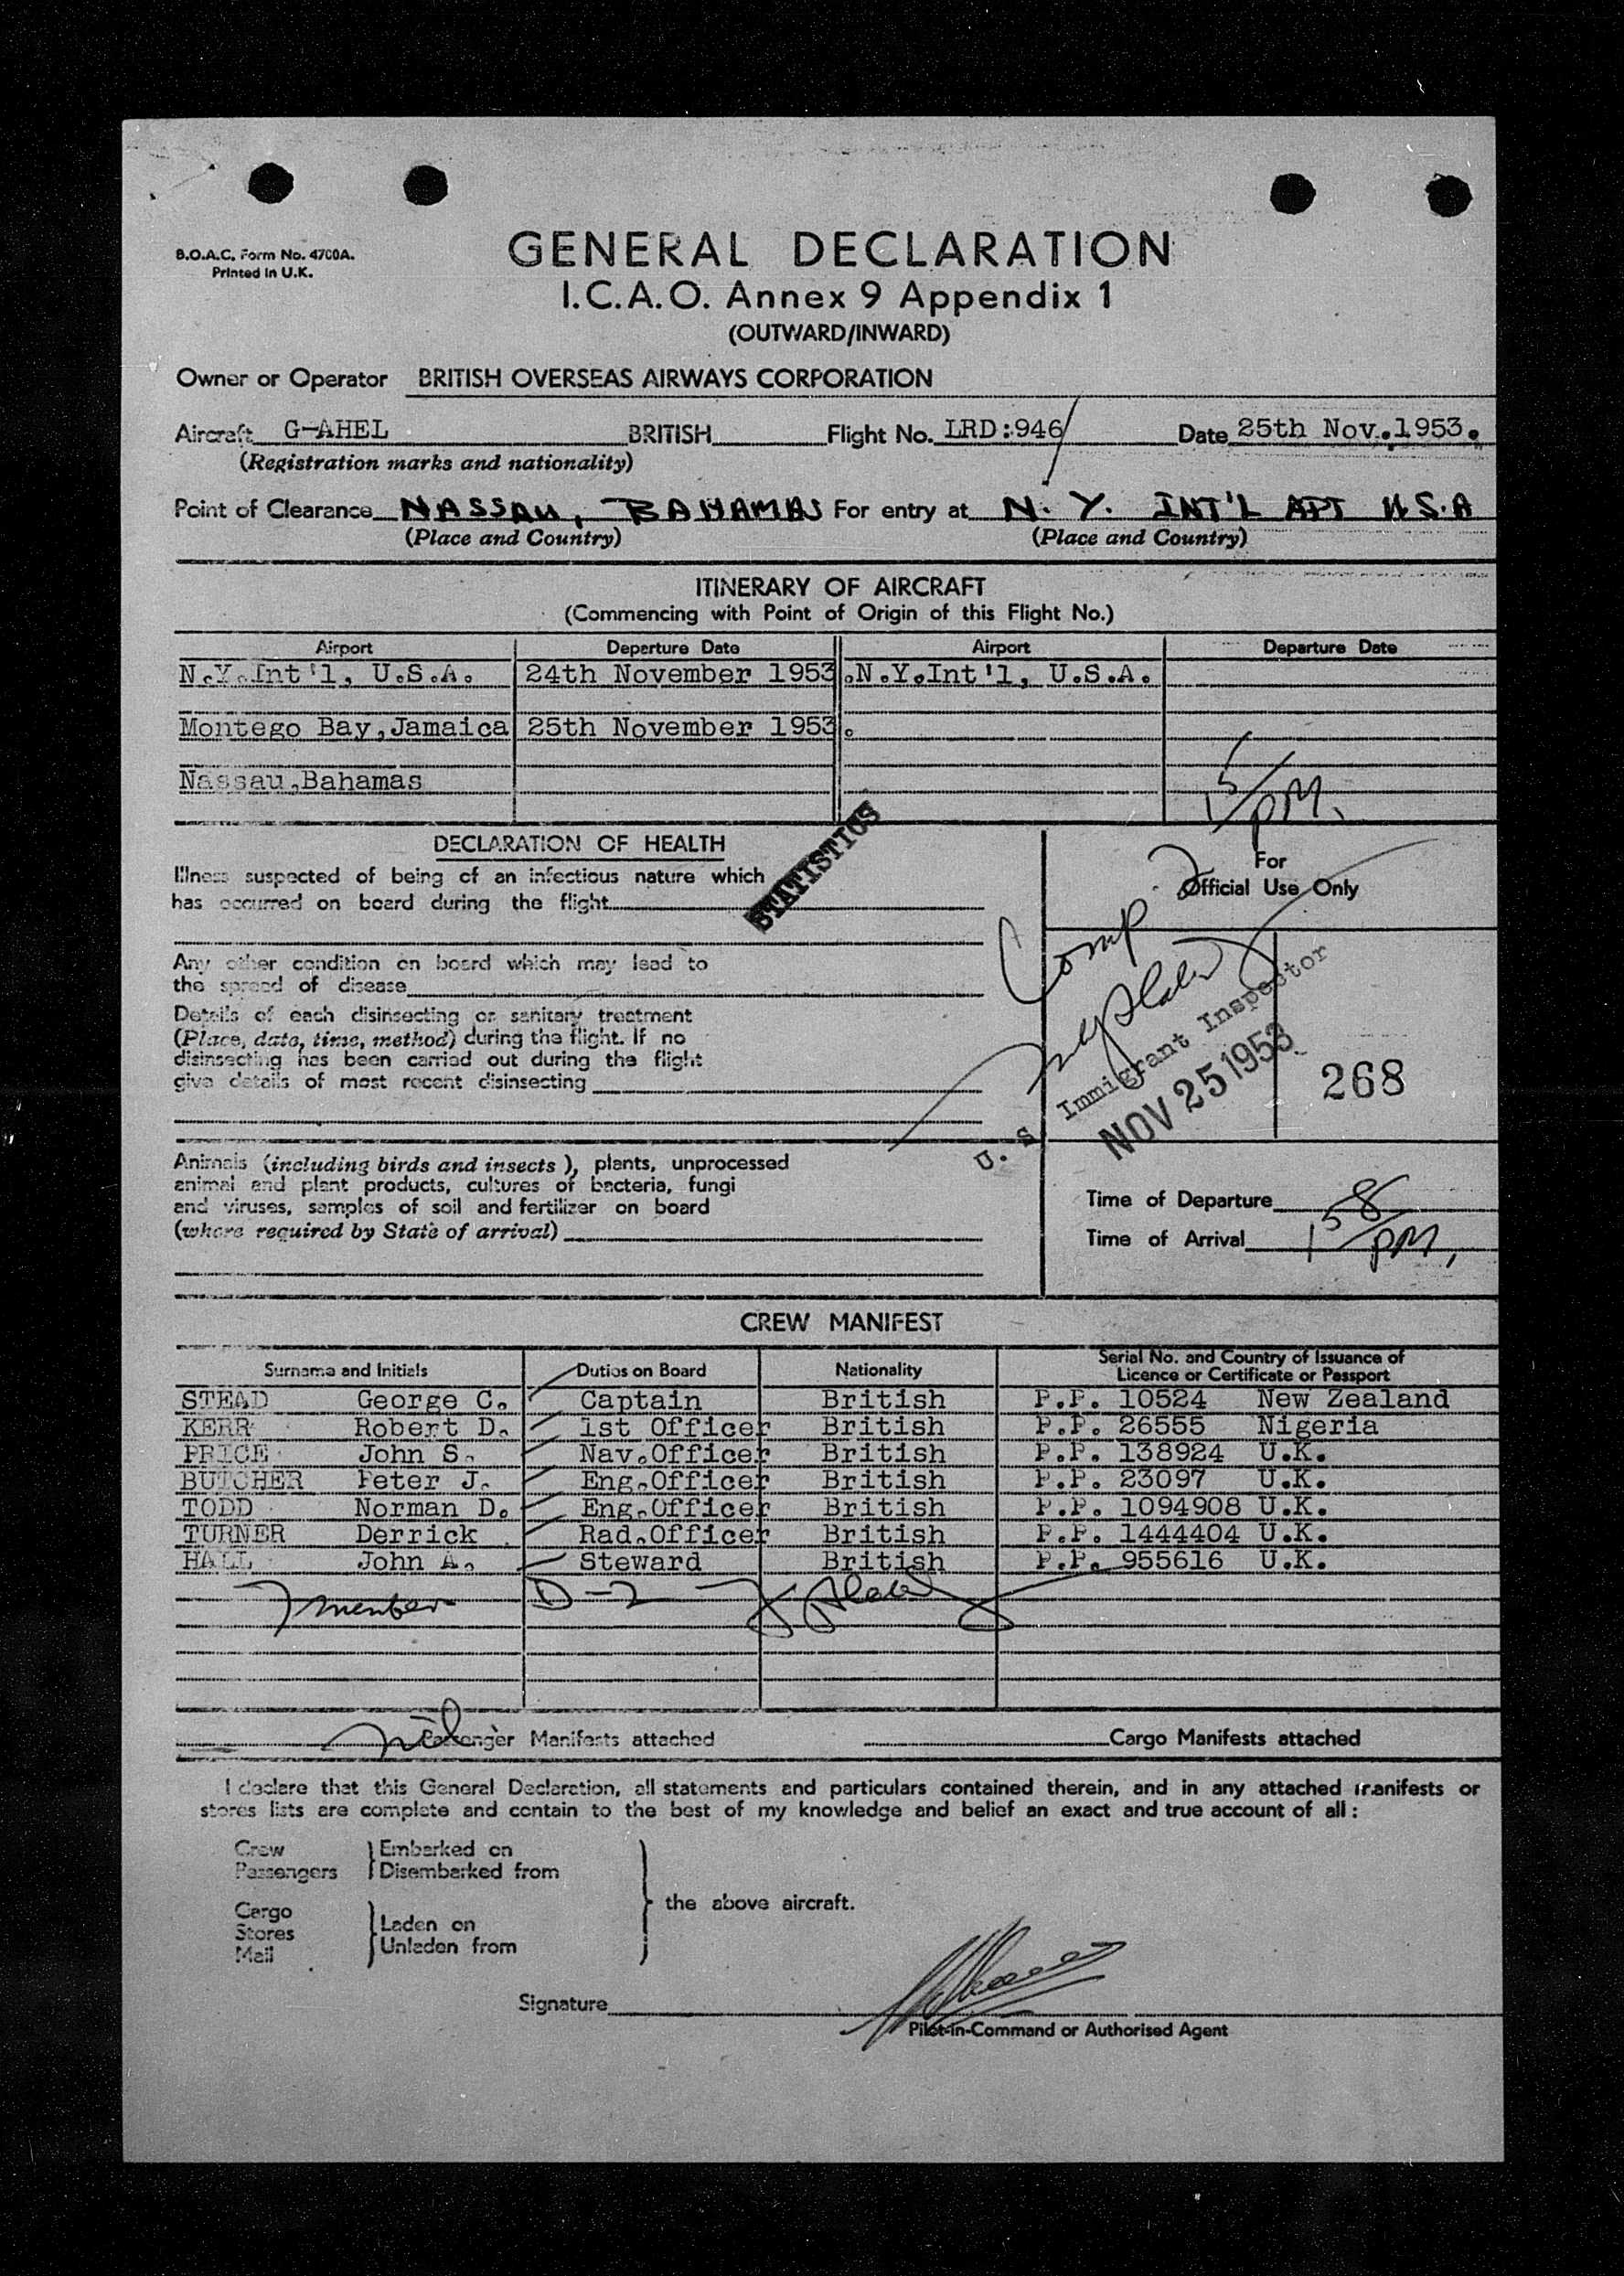 B.O.A.C. Form No. 4700A.
Printed in U.K.
GENERAL DECLARATION
I.C.A.O. Annex 9 Appendix 1
(OUTWARD/INWARD)
Owner or Operator BRITISH OVERSEAS AIRWAYS CORPORATION
Aircraft G-AHEL BRITISH Flight No. LRD:946/ Date 25th Nov.1953.
(Registration marks and nationality)
Point of Clearance NASSAU, BAHAMAS For entry at N.Y. INT'L APT U.S.A
(Place and Country) (Place and Country)
ITINERARY OF AIRCRAFT
(Commencing with Point of Origin of this Flight No.)
Airport Departure Date Airport Departure Date
N.Y.Int'l, U.S.A. 24th November 1953. N.Y.Int'l, U.S.A.
Montego Bay,Jamaica 25th November 1953.
Nassau,Bahamas
PM.
DECLARATION OF HEALTH
STATISTICS
For
Official Use Only
Illness suspected of being of an infectious nature which
has occurred on board during the flight
Any other condition on board which may lead to
the spread of disease
Details of each disinsecting or sanitary treatment
(Place, date, time, method) during the flight. If no
disinsecting has been carried out during the flight
give details of most recent disinsecting
Comp.
U. S. Immigrant Inspector
NOV 25 1953
268
Animals (including birds and insects), plants, unprocessed
animal and plant products, cultures of bacteria, fungi
and viruses, samples of soil and fertilizer on board
(where required by State of arrival)
Time of Departure
Time of Arrival 158/PM,
CREW MANIFEST
Surname and Initials Duties on Board Nationality Serial No. and Country of Issuance of
Licence or Certificate or Passport
STEAD George C. Captain British P.P. 10524 New Zealand
KERR Robert D. 1st Officer British P.P. 26555 Nigeria
PRICE John S. Nav.Officer British P.P. 138924 U.K.
BUTCHER Peter J. Eng.Officer British P.P. 23097 U.K.
TODD Norman D. Eng.Officer British P.P. 1094908 U.K.
TURNER Derrick Rad.Officer British P.P. 1444404 U.K.
HALL John A. Steward British P.P. 955616 U.K.
7 member D-2
nil Passenger Manifests attached Cargo Manifests attached
I declare that this General Declaration, all statements and particulars contained therein, and in any attached manifests or
stores lists are complete and contain to the best of my knowledge and belief an exact and true account of all :
Crew Embarked on
Passengers Disembarked from
the above aircraft.
Cargo
Stores Laden on
Mail Unladen from
Signature
Pilot-in-Command or Authorised Agent